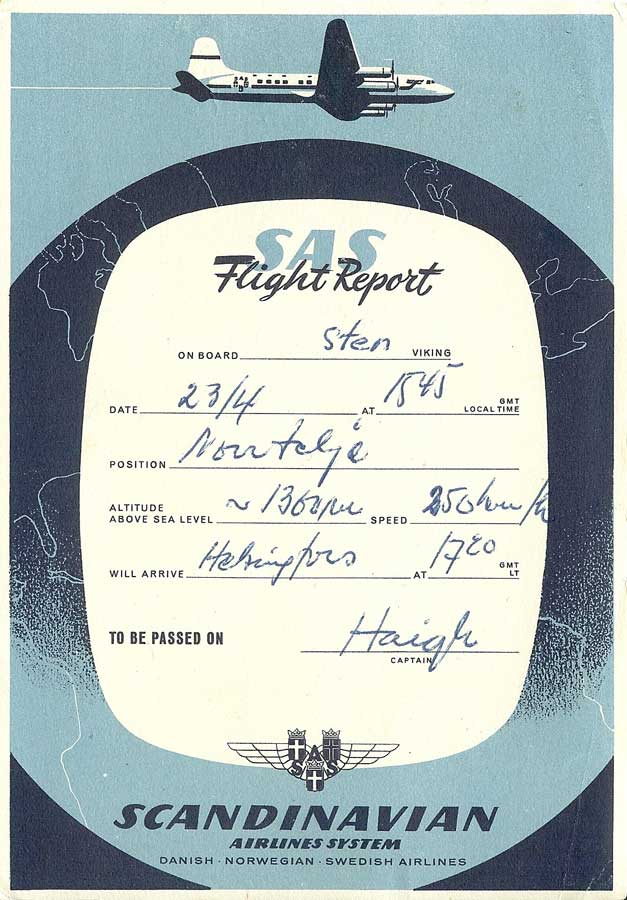 SAS
Flight Report
ON BOARD Sten VIKING
DATE 23/4 AT 1545 GMT LOCAL TIME
POSITION Norrtelje
ALTITUDE ABOVE SEA LEVEL ~ 1300 m SPEED 250 km/h
WILL ARRIVE Helsingfors AT 1720 GMT LT
TO BE PASSED ON Haigh
CAPTAIN
SAS
SCANDINAVIAN
AIRLINES SYSTEM
DANISH · NORWEGIAN · SWEDISH AIRLINES